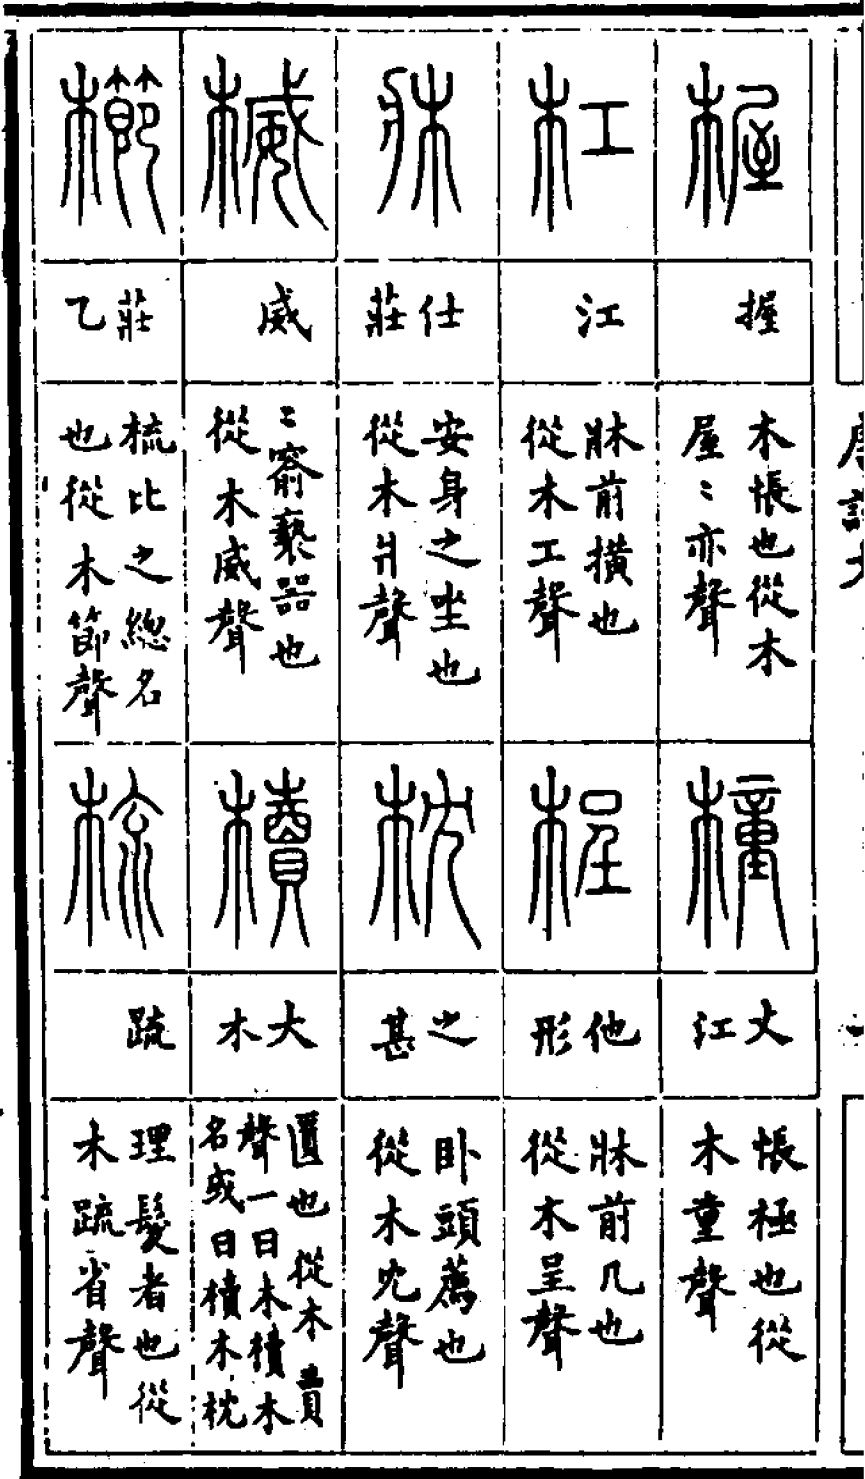 楃
握
木帳也從木
屋〻亦聲
橦
丈江
帳極也從
木童聲
杠
江
牀前橫也
從木工聲
桯
他形
牀前几也
從木呈聲
牀
仕莊
安身之坐也
從木爿聲
枕
之甚
卧頭薦也
從木冘聲
楲
威
〻窬褻器也
從木威聲
櫝
大木
匵也從木賣
聲一曰木櫝木
名或曰櫝木枕
櫛
莊乙
梳比之總名
也從木節聲
梳
疏
理髮者也從
木疏省聲